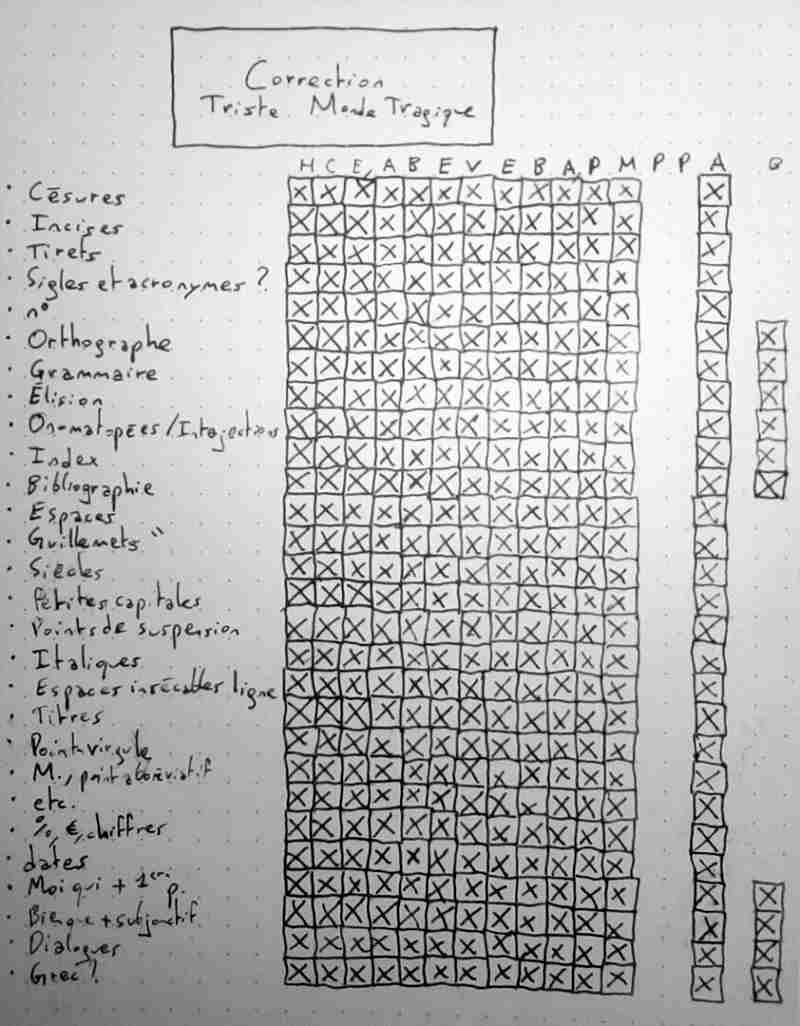 Correction
Triste Monde Tragique
H C E A B E V E B A P M P P A Q
Césures
Incises
Tirets
Sigles et acronymes ?
n°
Orthographe
Grammaire
Élision
Onomatopées / Interjections
Index
Bibliographie
Espaces
Guillemets "
Siècles
Petites capitales
Points de suspension
Italiques
Espaces insécables ligne
Titres
Point-virgule
M., point abréviatif
etc.
%, €, chiffres
dates
Moi qui + 1ère p.
Bien que + subjonctif
Dialogues
Grec ?